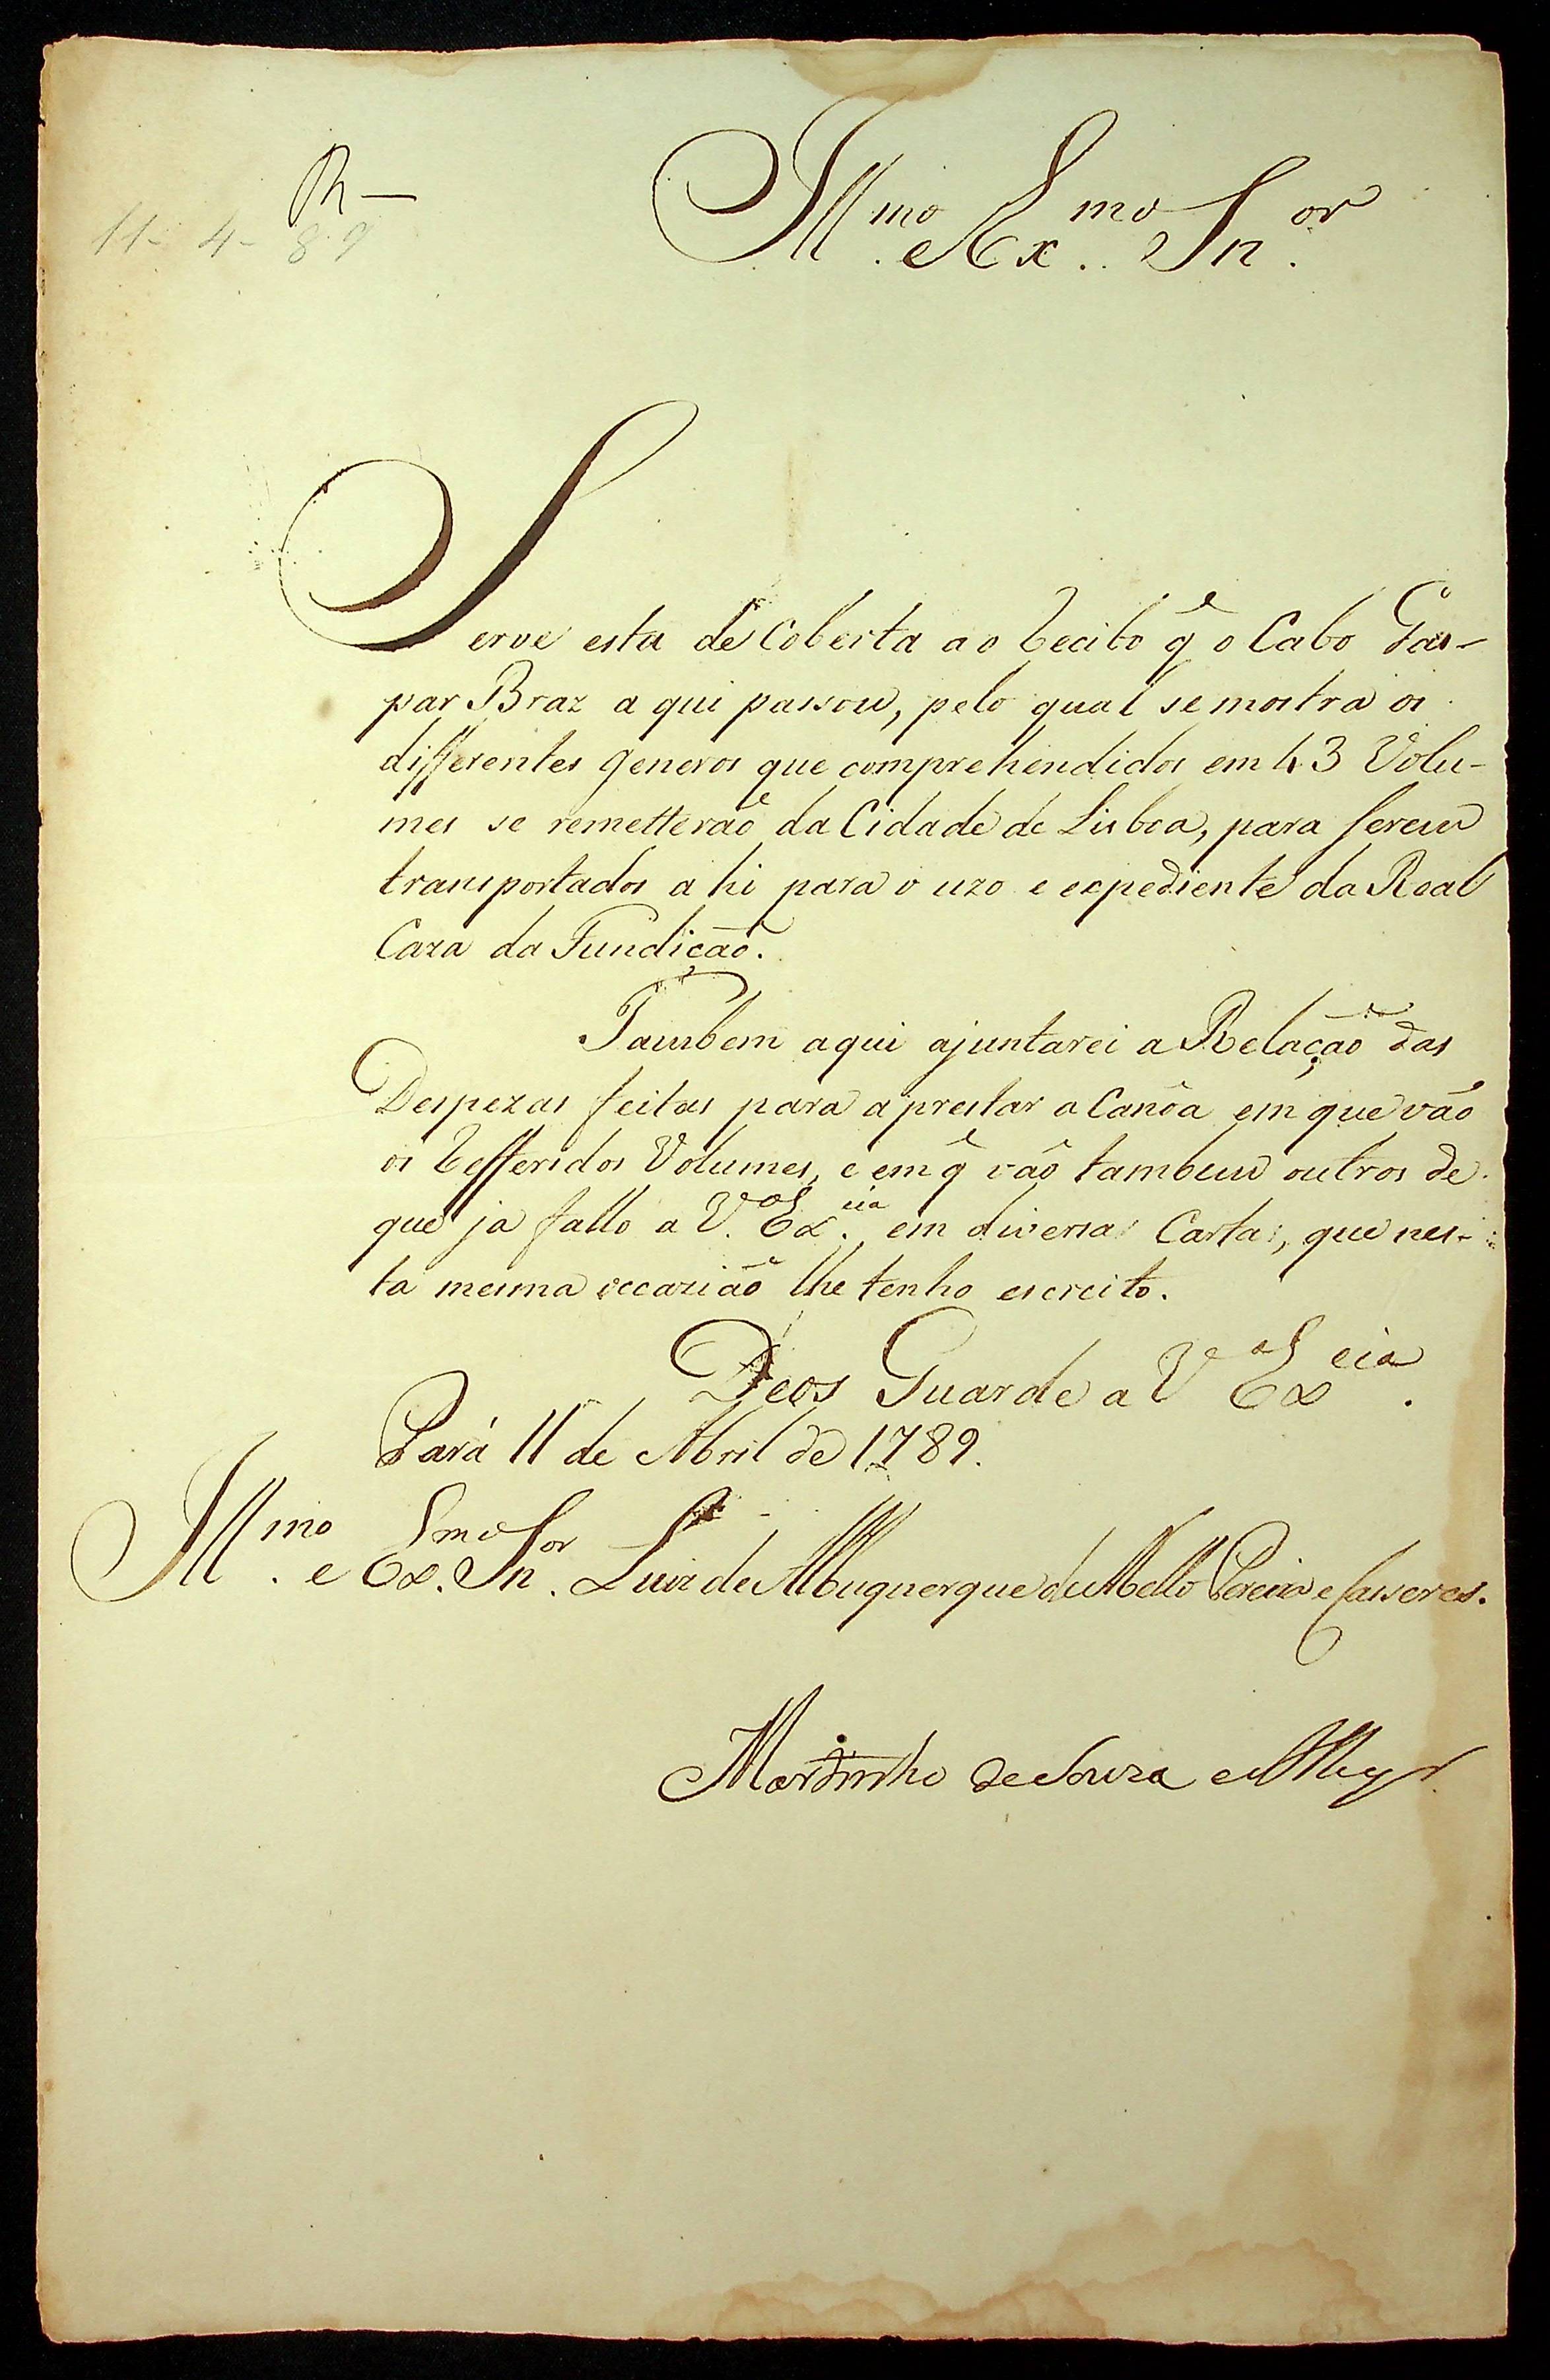 R —
11- 4- 89
Ill.mo e Ex.mo Snr.or
Serve esta de coberta ao recibo q̃ o Cabo Gas-
par Braz aqui passou, pelo qual se mostra os
differentes generos que comprehendidos em 43 Volu-
mes se remetterão da Cidade de Lisboa, para serem
transportados ahi para o uzo e expediente da Real
Caza da Fundição.
Tambem aqui ajuntarei a Relação das
Despezas feitas para aprestar a Canôa em que vão
os refferidos Volumes, e em q̃ vão tambem outros de
que ja fallo a V. Ex.cia em diversas Cartas, que nes-
ta mesma occazião lhe tenho escreito.
Deos Guarde a V Ex.cia
Pará 11 de Abril de 1789.
Ill.mo e Ex.mo Sn.or Luiz de Albuquerque de Mello Pereira e Casseres.
Martinho de Souza e Albuqr